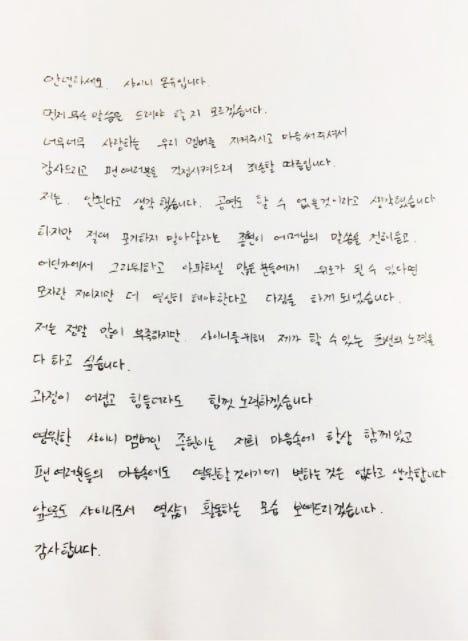 안녕하세요. 샤이니 온유입니다.
먼저 무슨 말씀을 드려야 할 지 모르겠습니다.
너무너무 사랑하는 우리 멤버를 지켜주시고 마음써주셔서
감사드리고 팬 여러분을 걱정시켜드려 죄송할 따름입니다.
저는. 안된다고 생각했습니다. 공연도 할 수 없을것이라고 생각했습니다
하지만 절대 포기하지 말아달라는 종현이 어머님의 말씀을 전해듣고.
어딘가에서 그리워하고 아파하실 많은 분들에게 위로가 될 수 있다면
모자란 저이지만 더 열심히 해야한다고 다짐을 하게 되었습니다.
저는 정말 많이 부족하지만. 샤이니를위해 제가 할 수 있는 최선의 노력을
다 하고 싶습니다.
과정이 어렵고 힘들더라도 힘껏 노력하겠습니다
영원한 샤이니 멤버인 종현이는 저희 마음속에 항상 함께있고
팬 여러분들의 마음속에도 영원할것이기에 변하는것은 없다고 생각합니다
앞으로도 샤이니로서 열심히 활동하는 모습 보여드리겠습니다.
감사합니다.